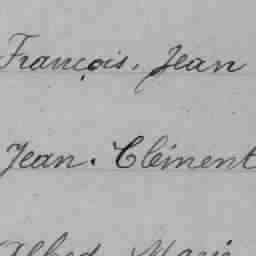 François. Jean
Jean. Clément
Alfred Marie